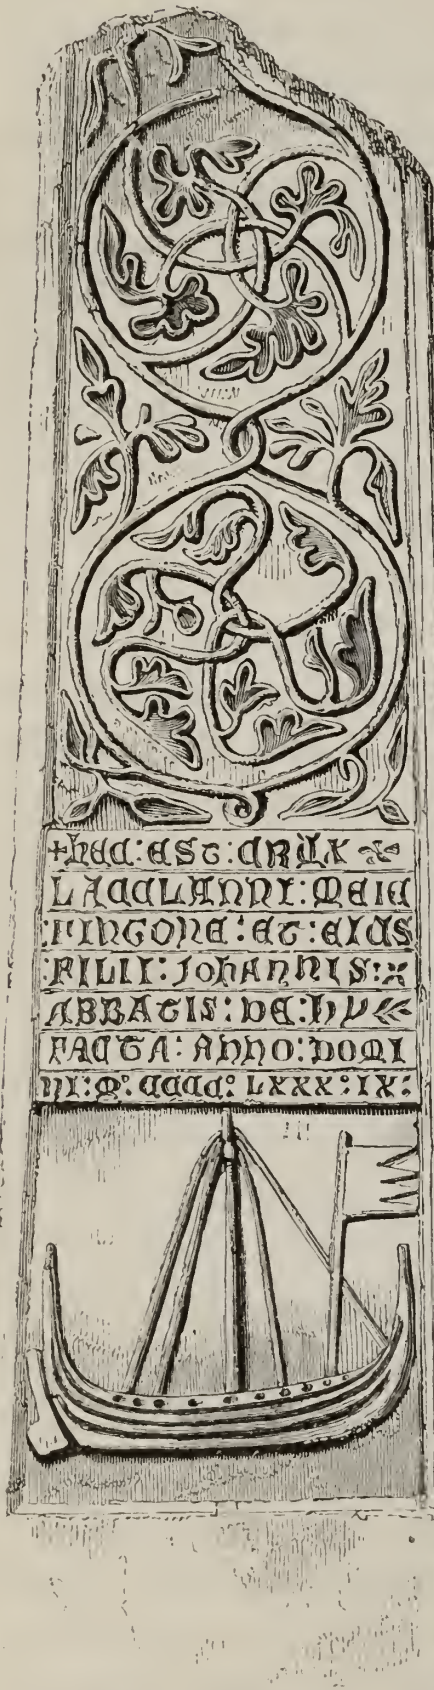 +HEC:EST:CRUX
LACCLANNI:MEIC
:FINGONE:ET:EIUS
:FILII:JOHANNIS:
ABBATIS:DE:HY
FACTA:ANNO:DOMI
NI:M°:CCCC°:LXXX°:IX: